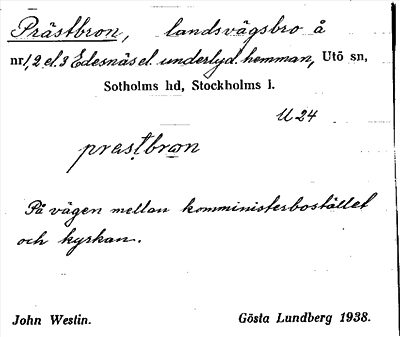 Prästbron, landsvägsbro å
nr 1, 2 el. 3 Edesnäs el. underlyd. hemman, Utö sn,
Sotholms hd, Stockholms l.
U 24
prastbron
På vägen mellan komministerbostället
och kyrkan.
John Westin. Gösta Lundberg 1938.